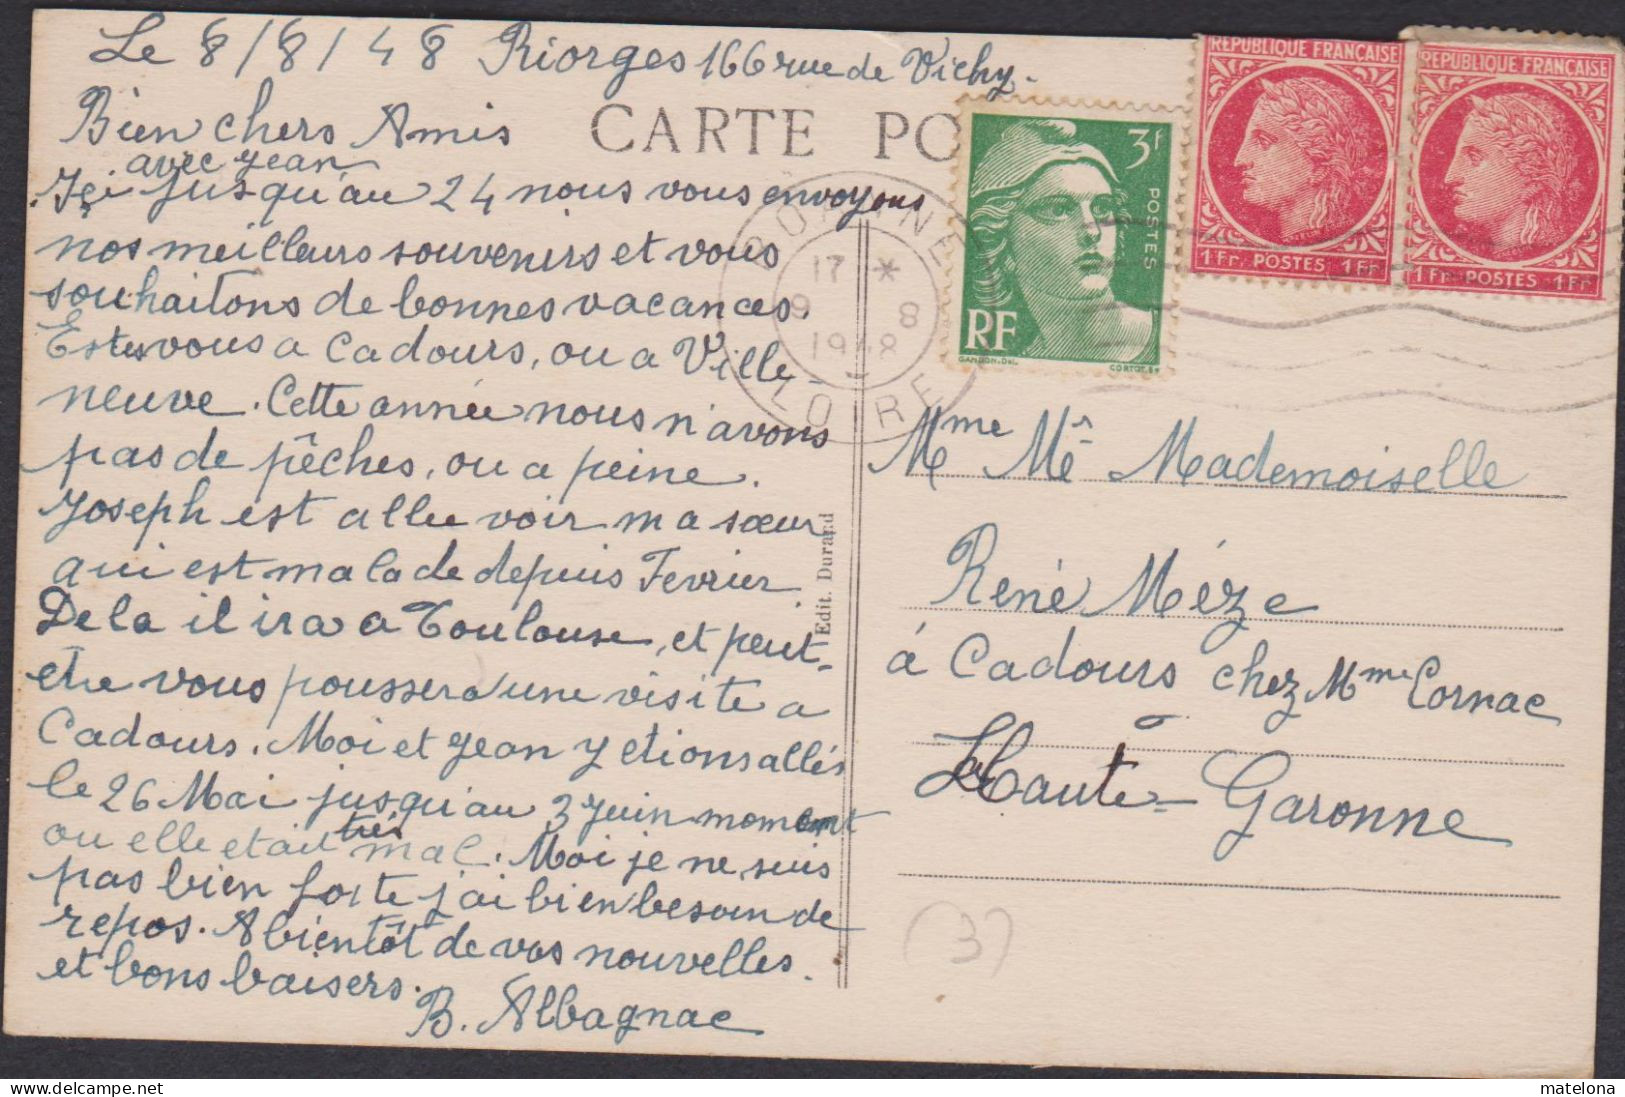 Le 8/8/48 Riorges 166 rue de Vichy.
CARTE PO
Bien chers Amis
avec Jean
Içi jusqu'au 24 nous vous envoyons
nos meilleurs souvenirs et vous
souhaitons de bonnes vacances.
Estes vous a Cadours, ou a Ville-
neuve. Cette année nous n'avons
pas de pêches, ou a peine.
Joseph est allé voir ma sœur
qui est malade depuis Fevrier
De la il ira a Toulouse, et peut-
etre vous poussera une visite a
Cadours. Moi et Jean y etions allés
le 26 Mai jusqu'au 3 Juin moment
ou elle etait très mal. Moi je ne suis
pas bien forte j'ai bien besoin de
repos. A bientôt de vos nouvelles.
et bons baisers.
B. Albagnac
Edit. Durand
3f
POSTES
RF
GANDON.Del.
CORTOT.Sc
REPUBLIQUE FRANÇAISE
1Fr. POSTES 1Fr
REPUBLIQUE FRANÇAISE
1Fr. POSTES 1Fr
ROANNE
17 *
9 8
1948
LOIRE
Mme Mr Mademoiselle
René Méze
á Cadours chez Mme Cornac
Haute-Garonne
(3)
matelona